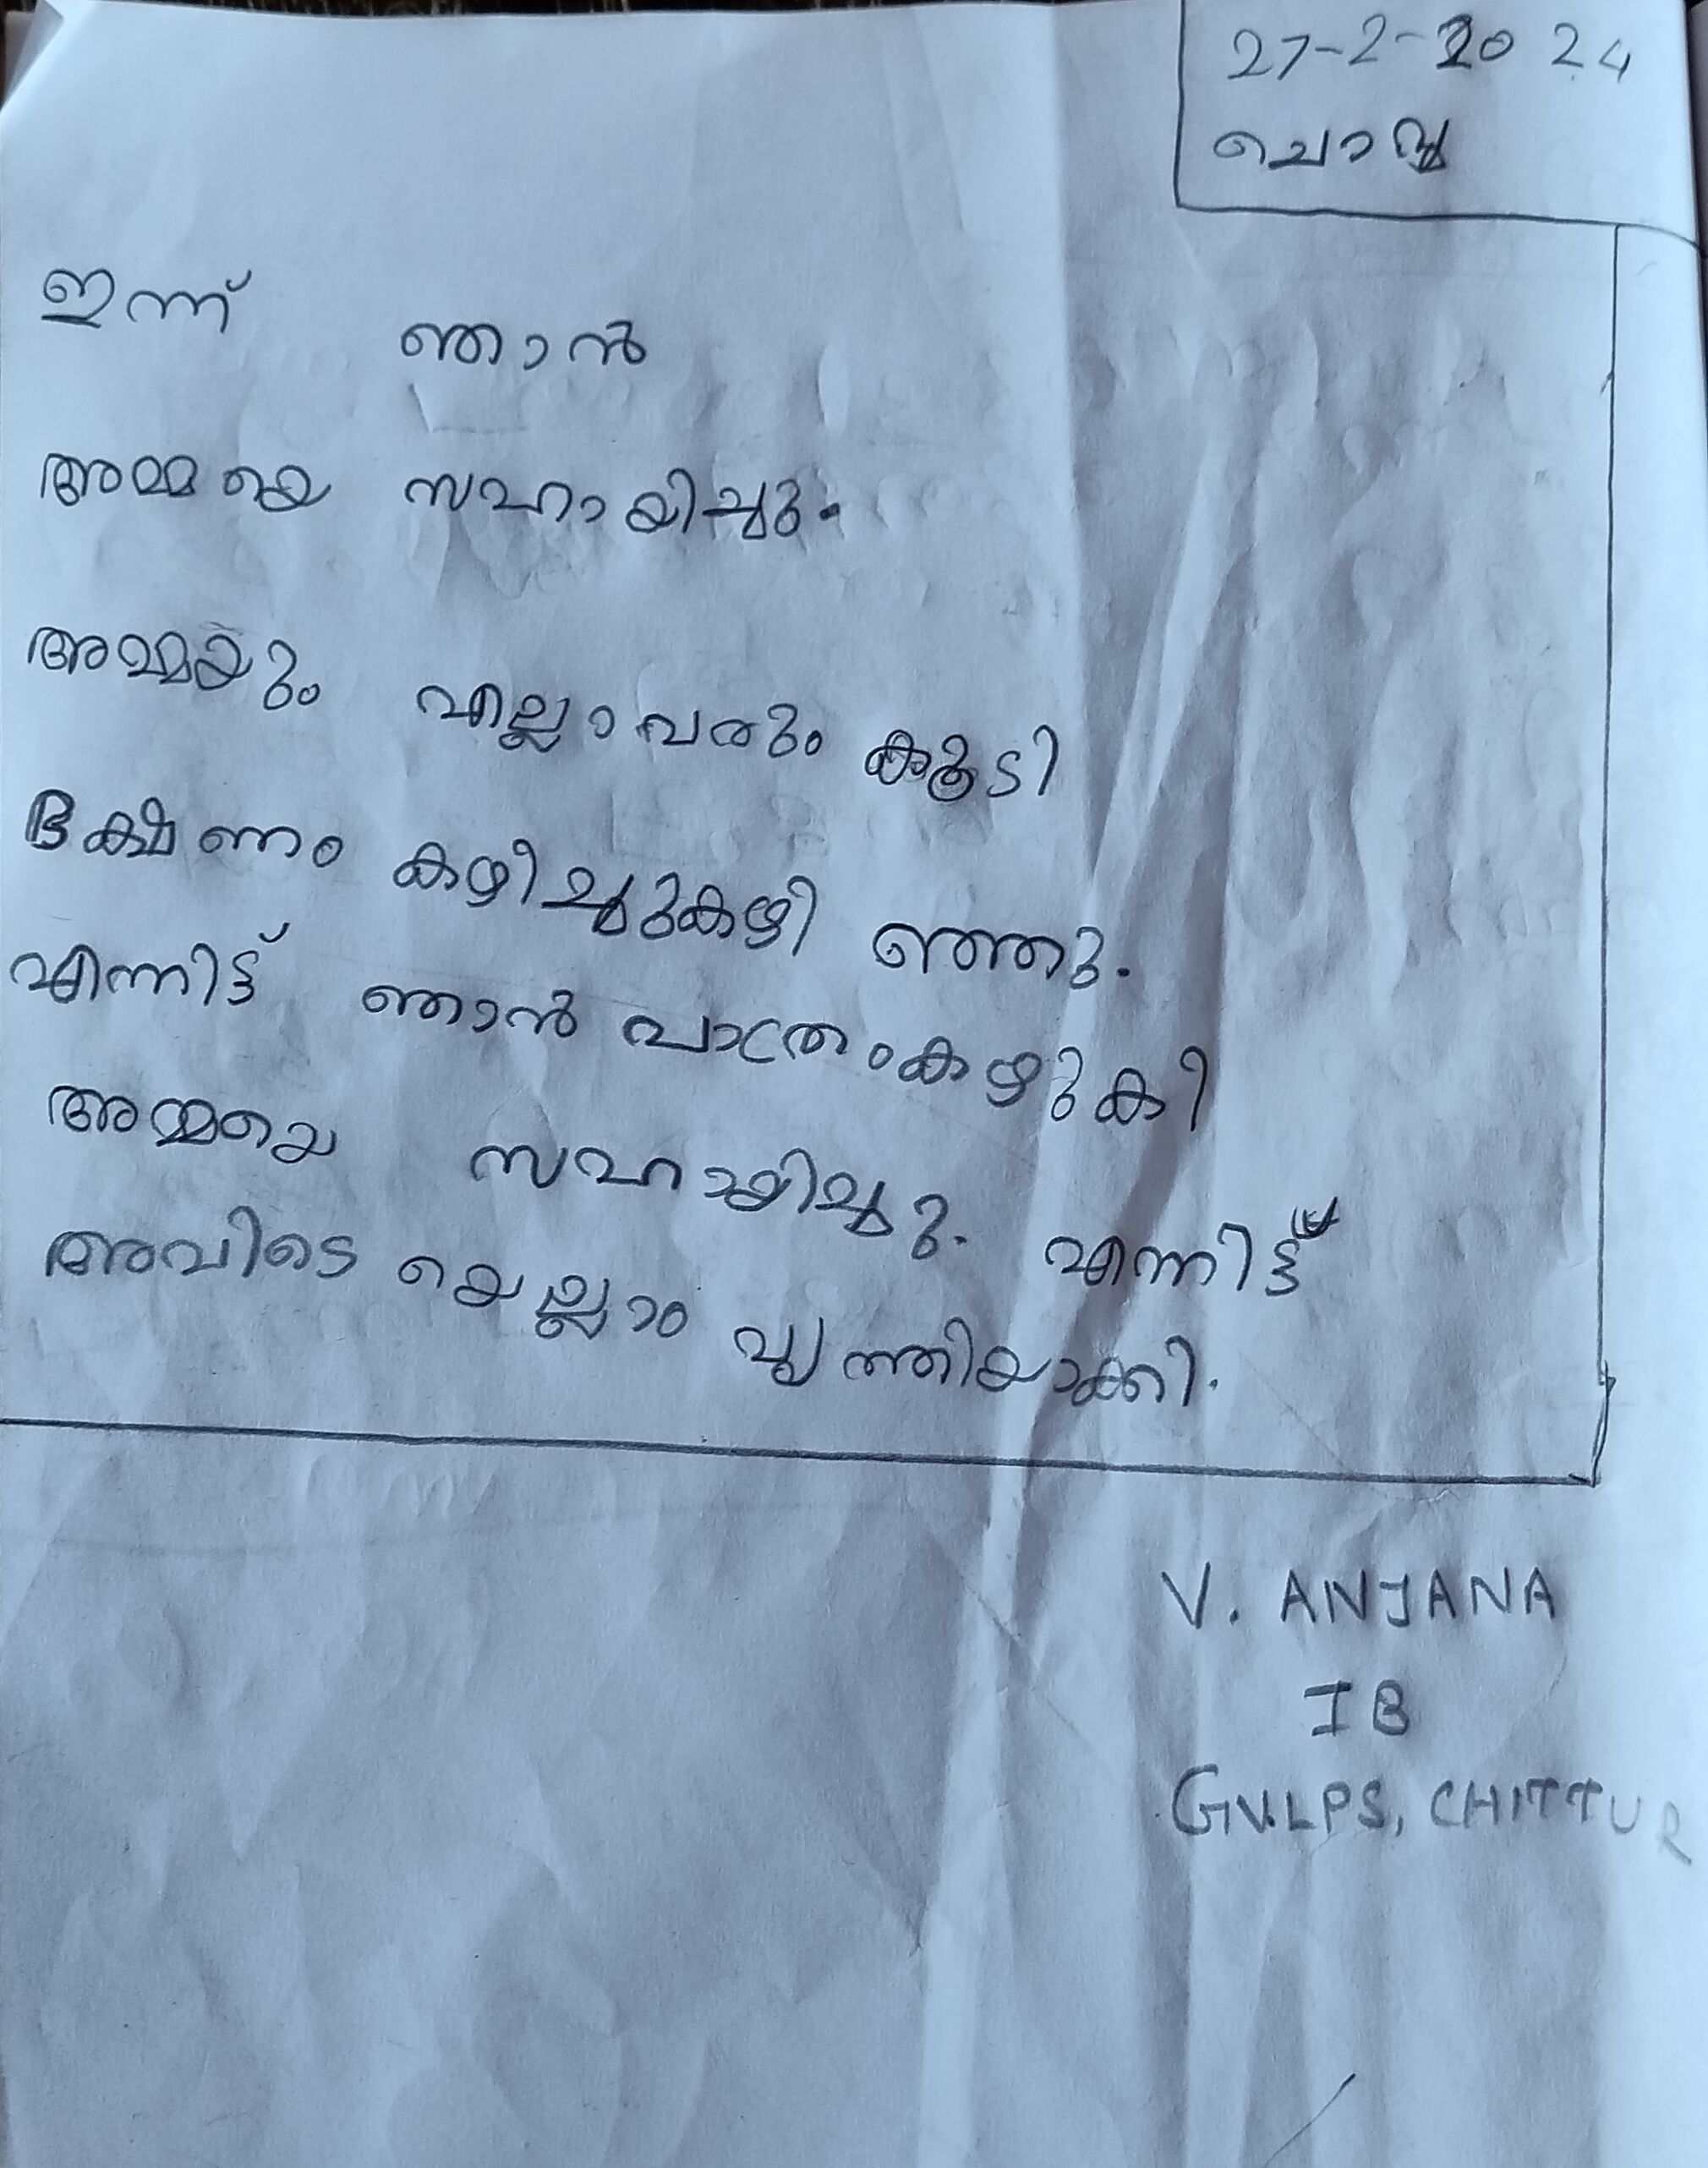 27-2-2024
ചൊവ്വ
ഇന്ന് ഞാൻ
അമ്മയെ സഹായിച്ചു.
അമ്മയും എല്ലാവരും കൂടി
ഭക്ഷണം കഴിച്ചുകഴിഞ്ഞു.
എന്നിട്ട് ഞാൻ പാത്രംകഴുകി
അമ്മയെ സഹായിച്ചു. എന്നിട്ട്
അവിടെയെല്ലാം വൃത്തിയാക്കി.
V. ANJANA
I B
G.V.L.P.S, CHITTUR